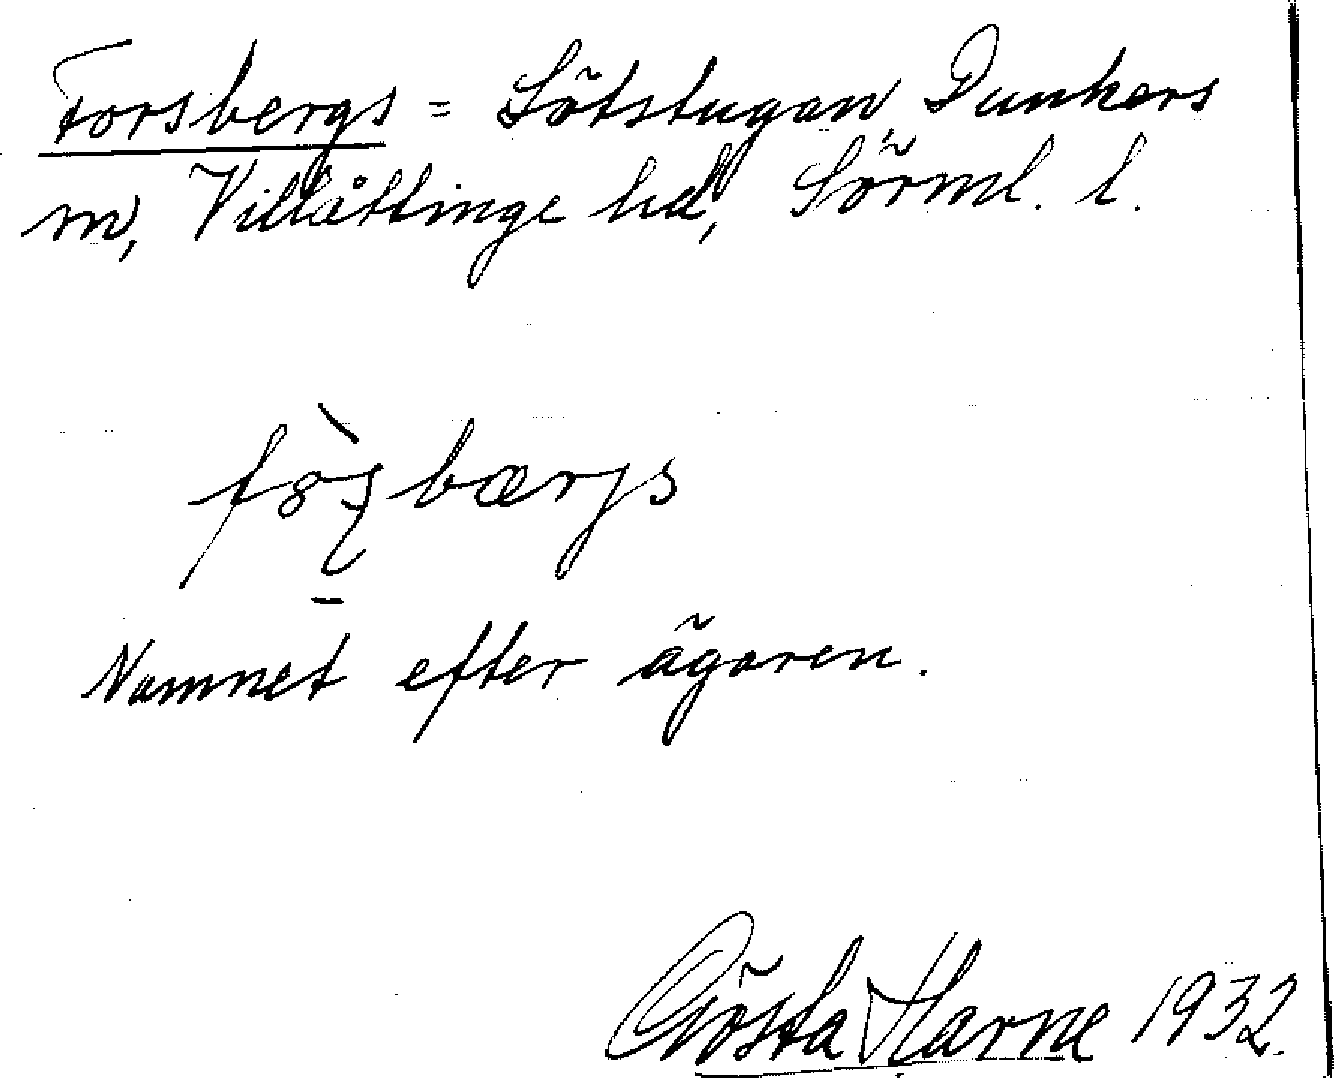 Forsbergs = Lötstugan, Dunkers
sn, Villåttinge hd, Sörml. l.
bærjs
Namnet efter ägaren.
Gösta Harne 1932.